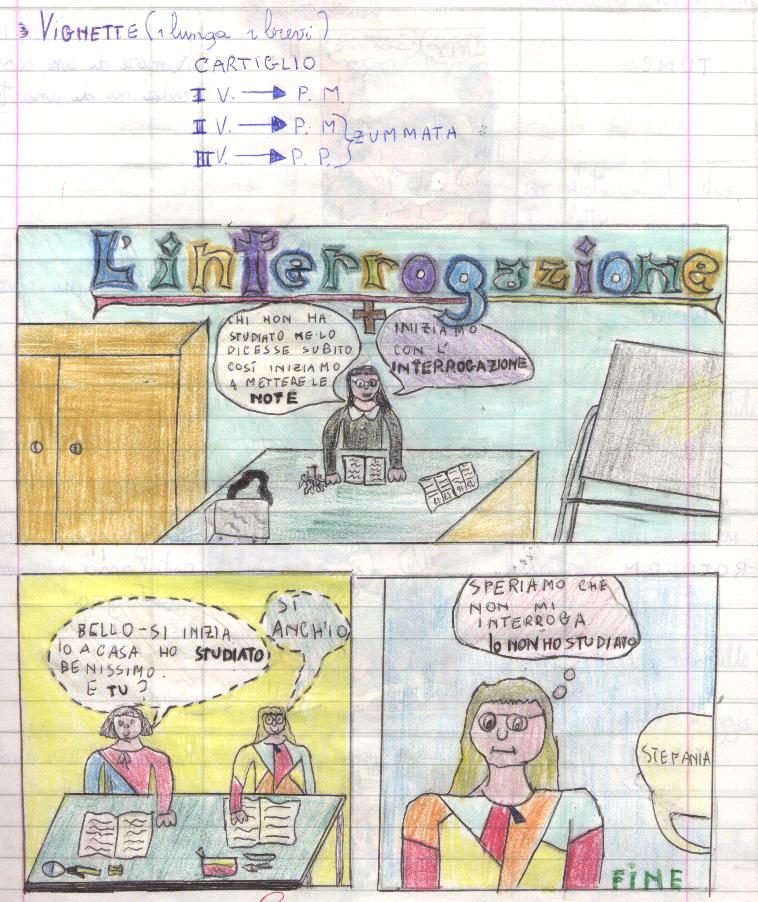 3 VIGNETTE (1 lunga 2 brevi)
CARTIGLIO
I V. → P. M.
II V. → P. M
ZUMMATA
III V. → P. P.
L'interrogazione
CHI NON HA
STUDIATO ME LO
DICESSE SUBITO
COSÍ INIZIAMO
A METTERE LE
NOTE
+
INIZIAMO
CON L'
INTERROGAZIONE
BELLO-SI INIZIA.
IO A CASA HO STUDIATO
BENISSIMO.
E TU?
SÍ
ANCH'IO
SPERIAMO CHE
NON MI
INTERROGA
IO NON HO STUDIATO
STEFANIA
FINE